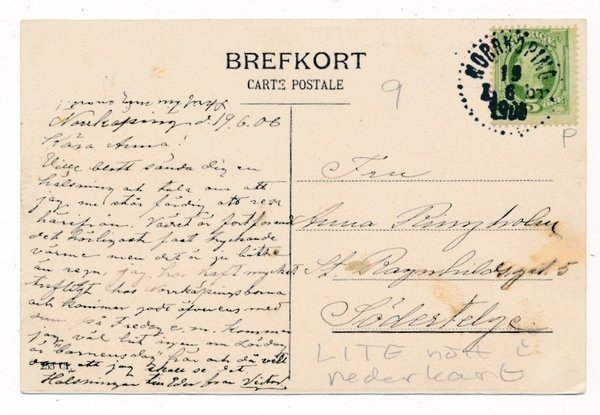 BREFKORT
CARTE POSTALE
NORRKÖPING
19
6
1906
9
P
Norrköping d. 19.6.06
Kära Anna!
Ville blott sända dig en
hälsning och tala om att
jag nu står färdig att resa
härifrån. Vädret är fortfarande
det härligast fast tryckande
värme men det är ju bättre
än regn, jag har haft mycket
trefligt hos Norrköpingsborna
och kommer godt öfverens med
dem på Fredag e.m. kommer
jag väl hit igen om Lördag
är "barnens dag" här och då vill
att jag skall se det
Hälsningar till Eder från Victor
Fru
Anna
St. Ragnhildsgat. 5
Södertelge
LITE nött i
nederkant